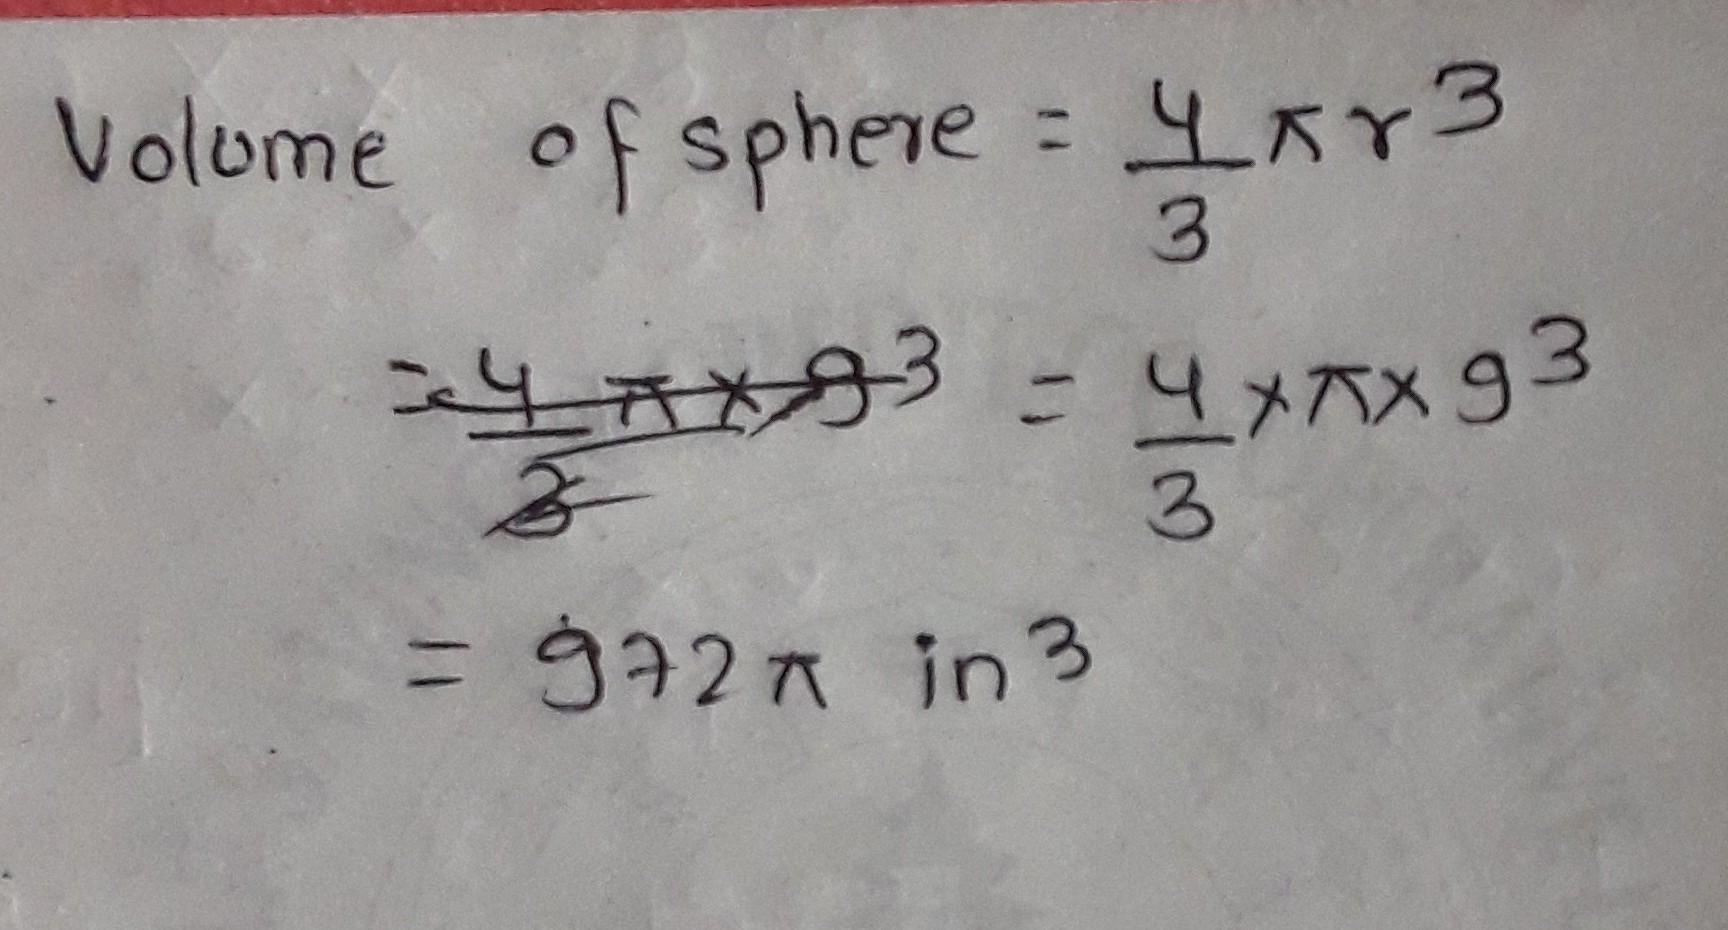 Volume of sphere = 4/3 πr³
= 4/3 π × 9³ = 4/3 × π × 9³
= 972π in³